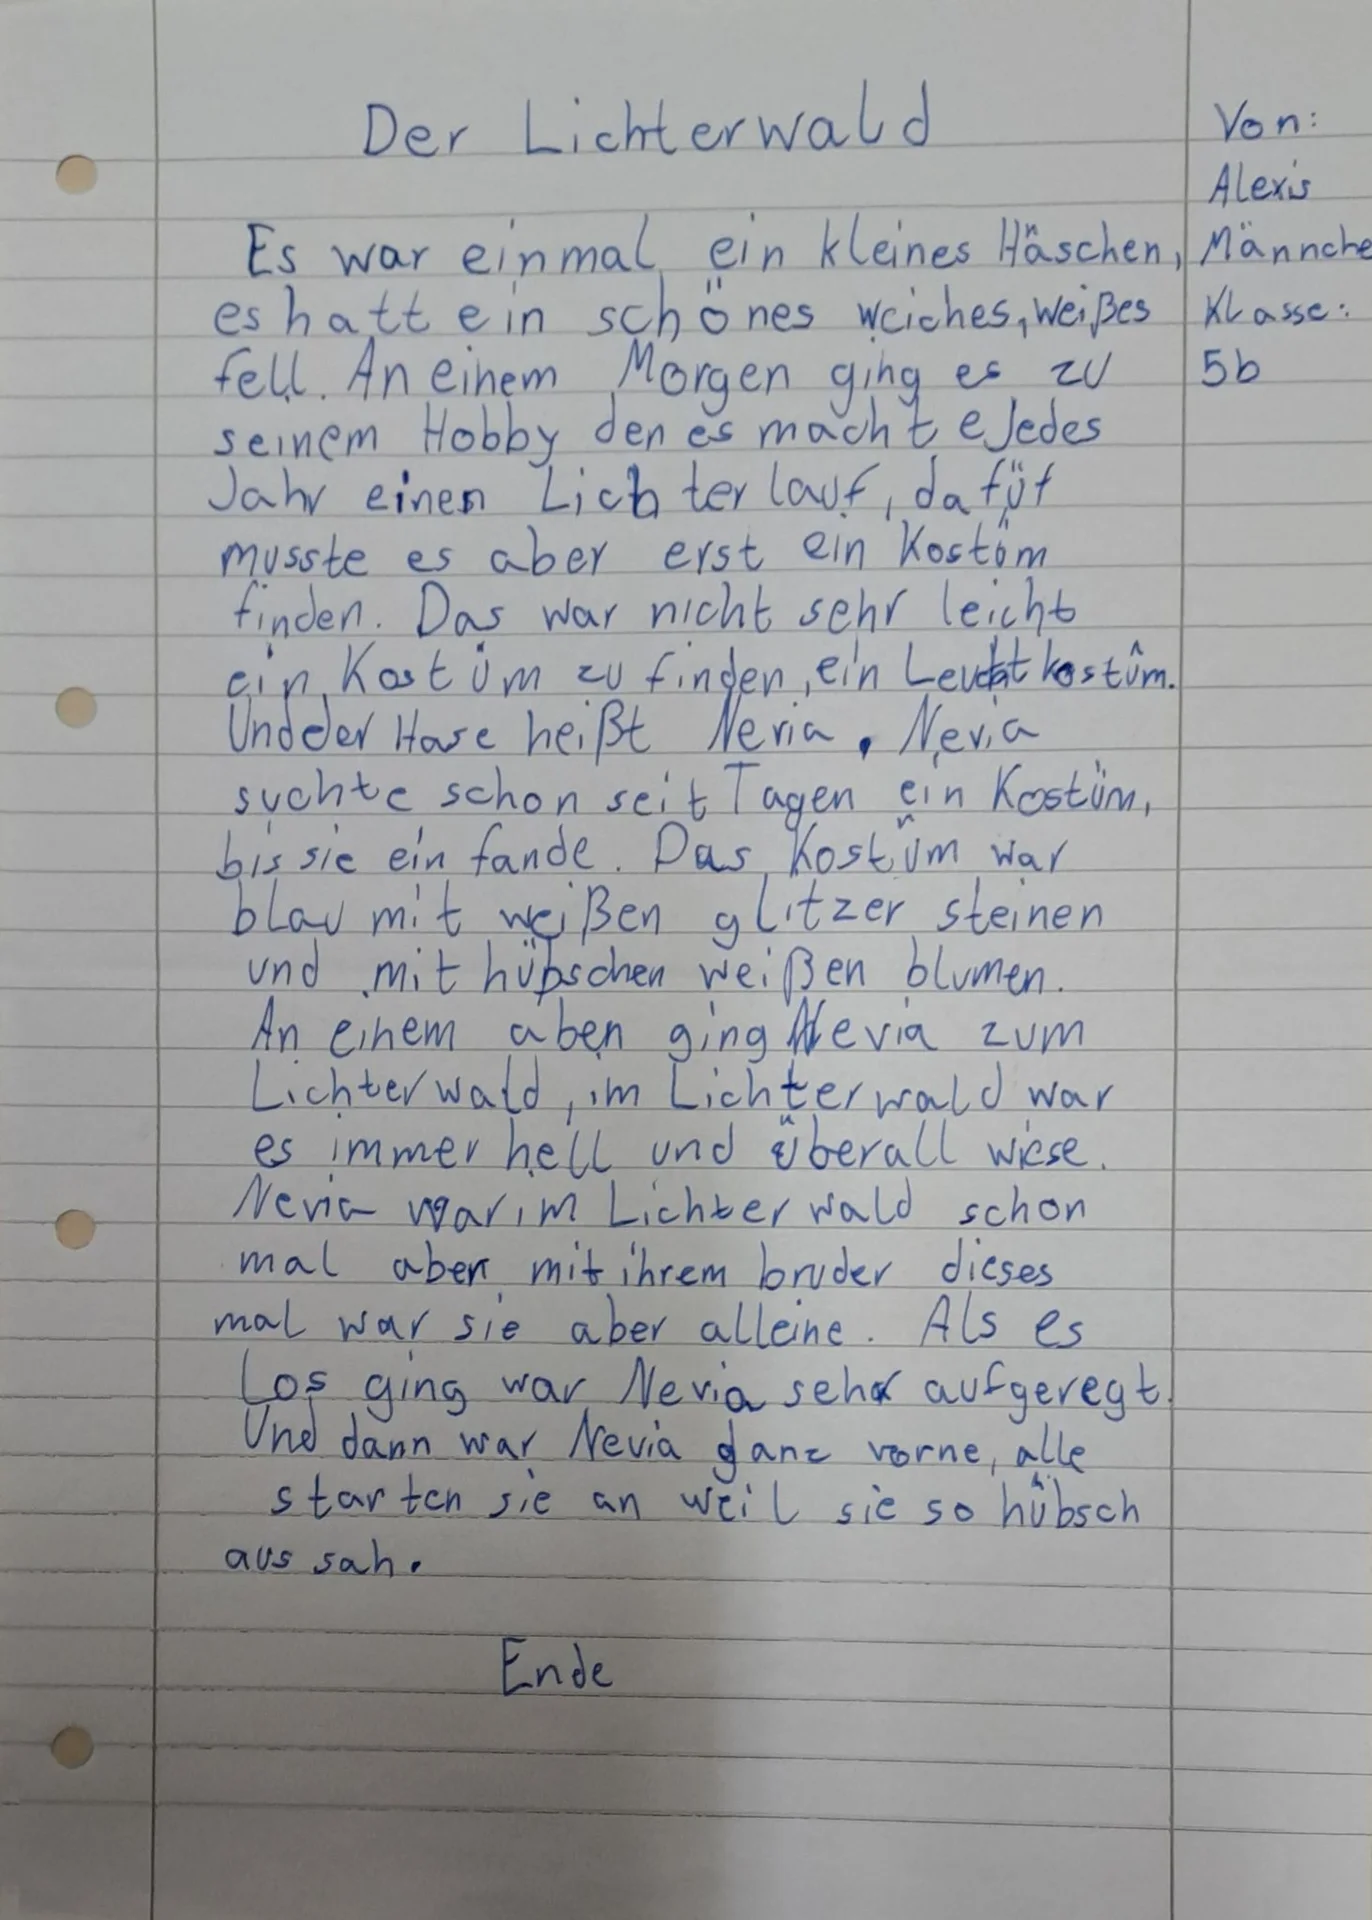 Der Lichterwald
Von:
Alexis
Männche
Klasse:
5b
Es war einmal ein kleines Häschen,
es hatt ein schönes weiches, weißes
fell. An einem Morgen ging es zu
seinem Hobby den es macht e Jedes
Jahr einen Lichterlauf, dafür
musste es aber erst ein Kostöm
finden. Das war nicht sehr leicht
ein Kostüm zu finden, ein Leuchtkostüm.
Und der Hase heißt Nevia. Nevia
suchte schon seit Tagen ein Kostüm,
bis sie ein fande. Das Kostüm war
blau mit weißen glitzer steinen
und mit hübschen weißen blumen.
An einem aben ging Nevia zum
Lichterwald, im Lichterwald war
es immer hell und überall wiese.
Nevia war im Lichterwald schon
mal aber mit ihrem bruder dieses
mal war sie aber alleine. Als es
Los ging war Nevia sehr aufgeregt.
Und dann war Nevia ganz vorne, alle
starten sie an weil sie so hübsch
aus sah.
Ende